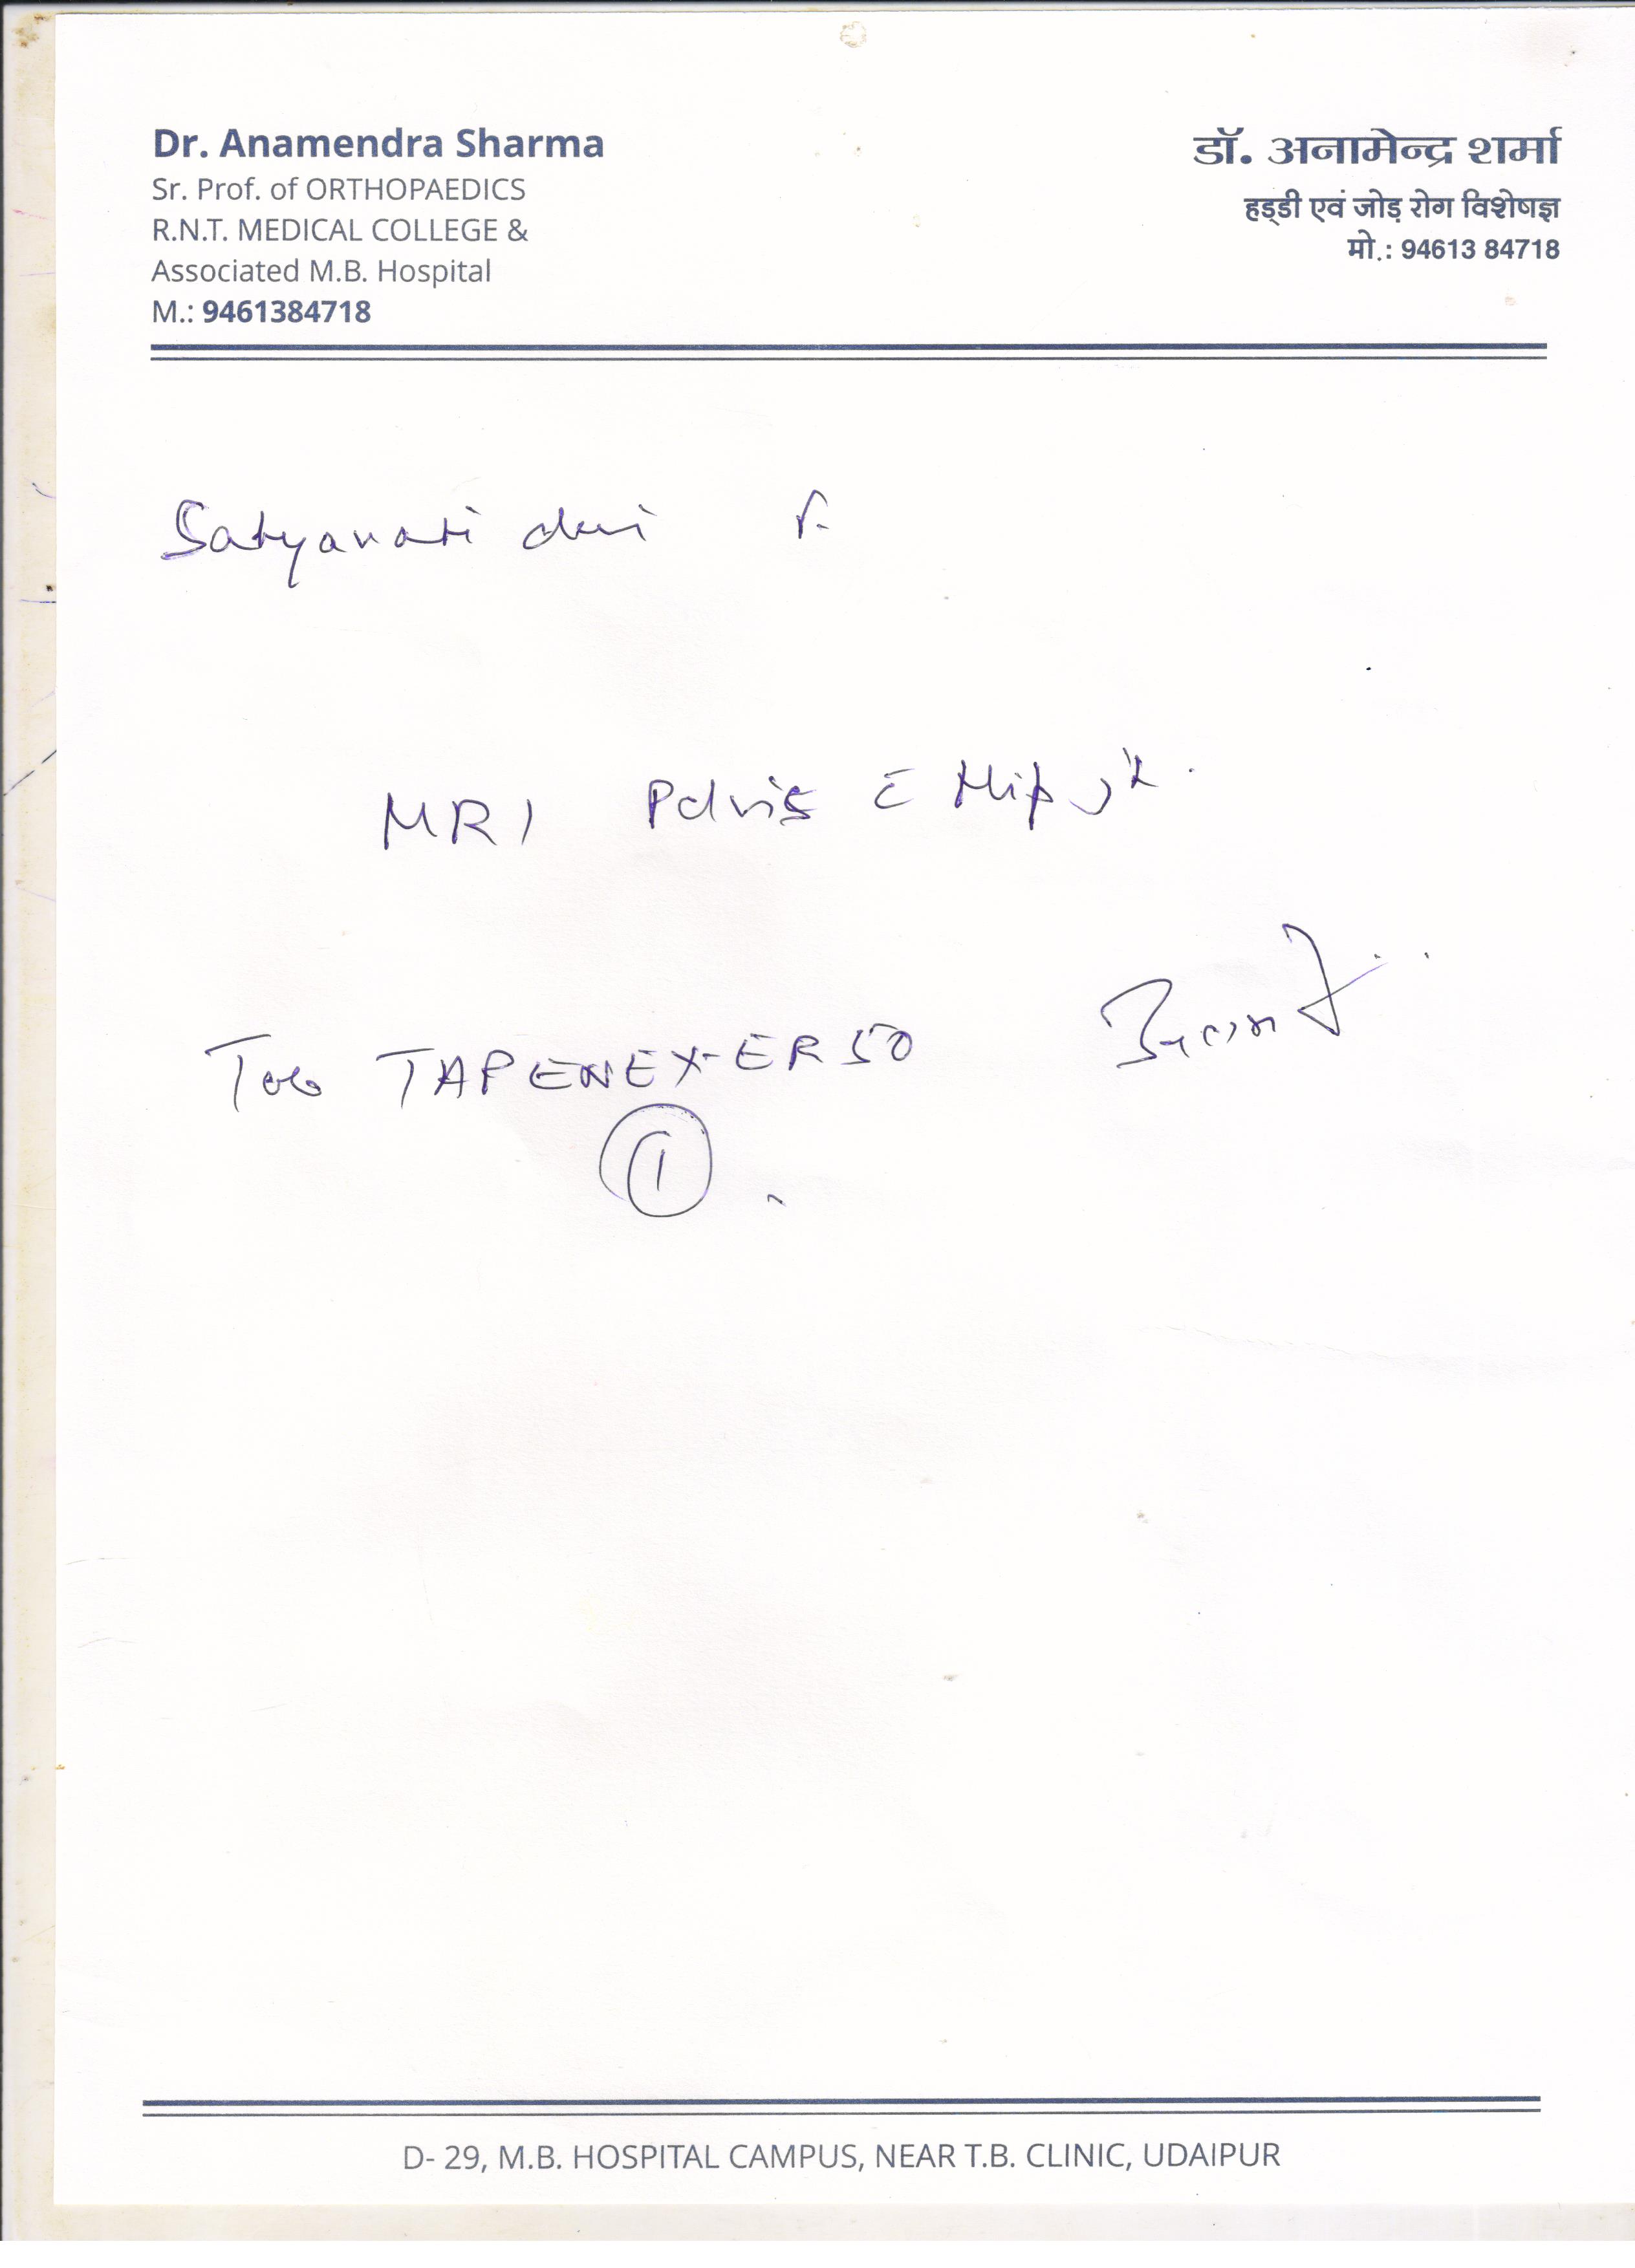 Dr. Anamendra Sharma
Sr. Prof. of ORTHOPAEDICS
R.N.T. MEDICAL COLLEGE &
Associated M.B. Hospital
M.: 9461384718
डॉ. अनामेन्द्र शर्मा
हड्डी एवं जोड़ रोग विशेषज्ञ
मो.: 94613 84718
Satyavati devi F.
MRI Pelvis c̄ Hip Jt.
Tab TAPENEX-ER 50
1
D- 29, M.B. HOSPITAL CAMPUS, NEAR T.B. CLINIC, UDAIPUR